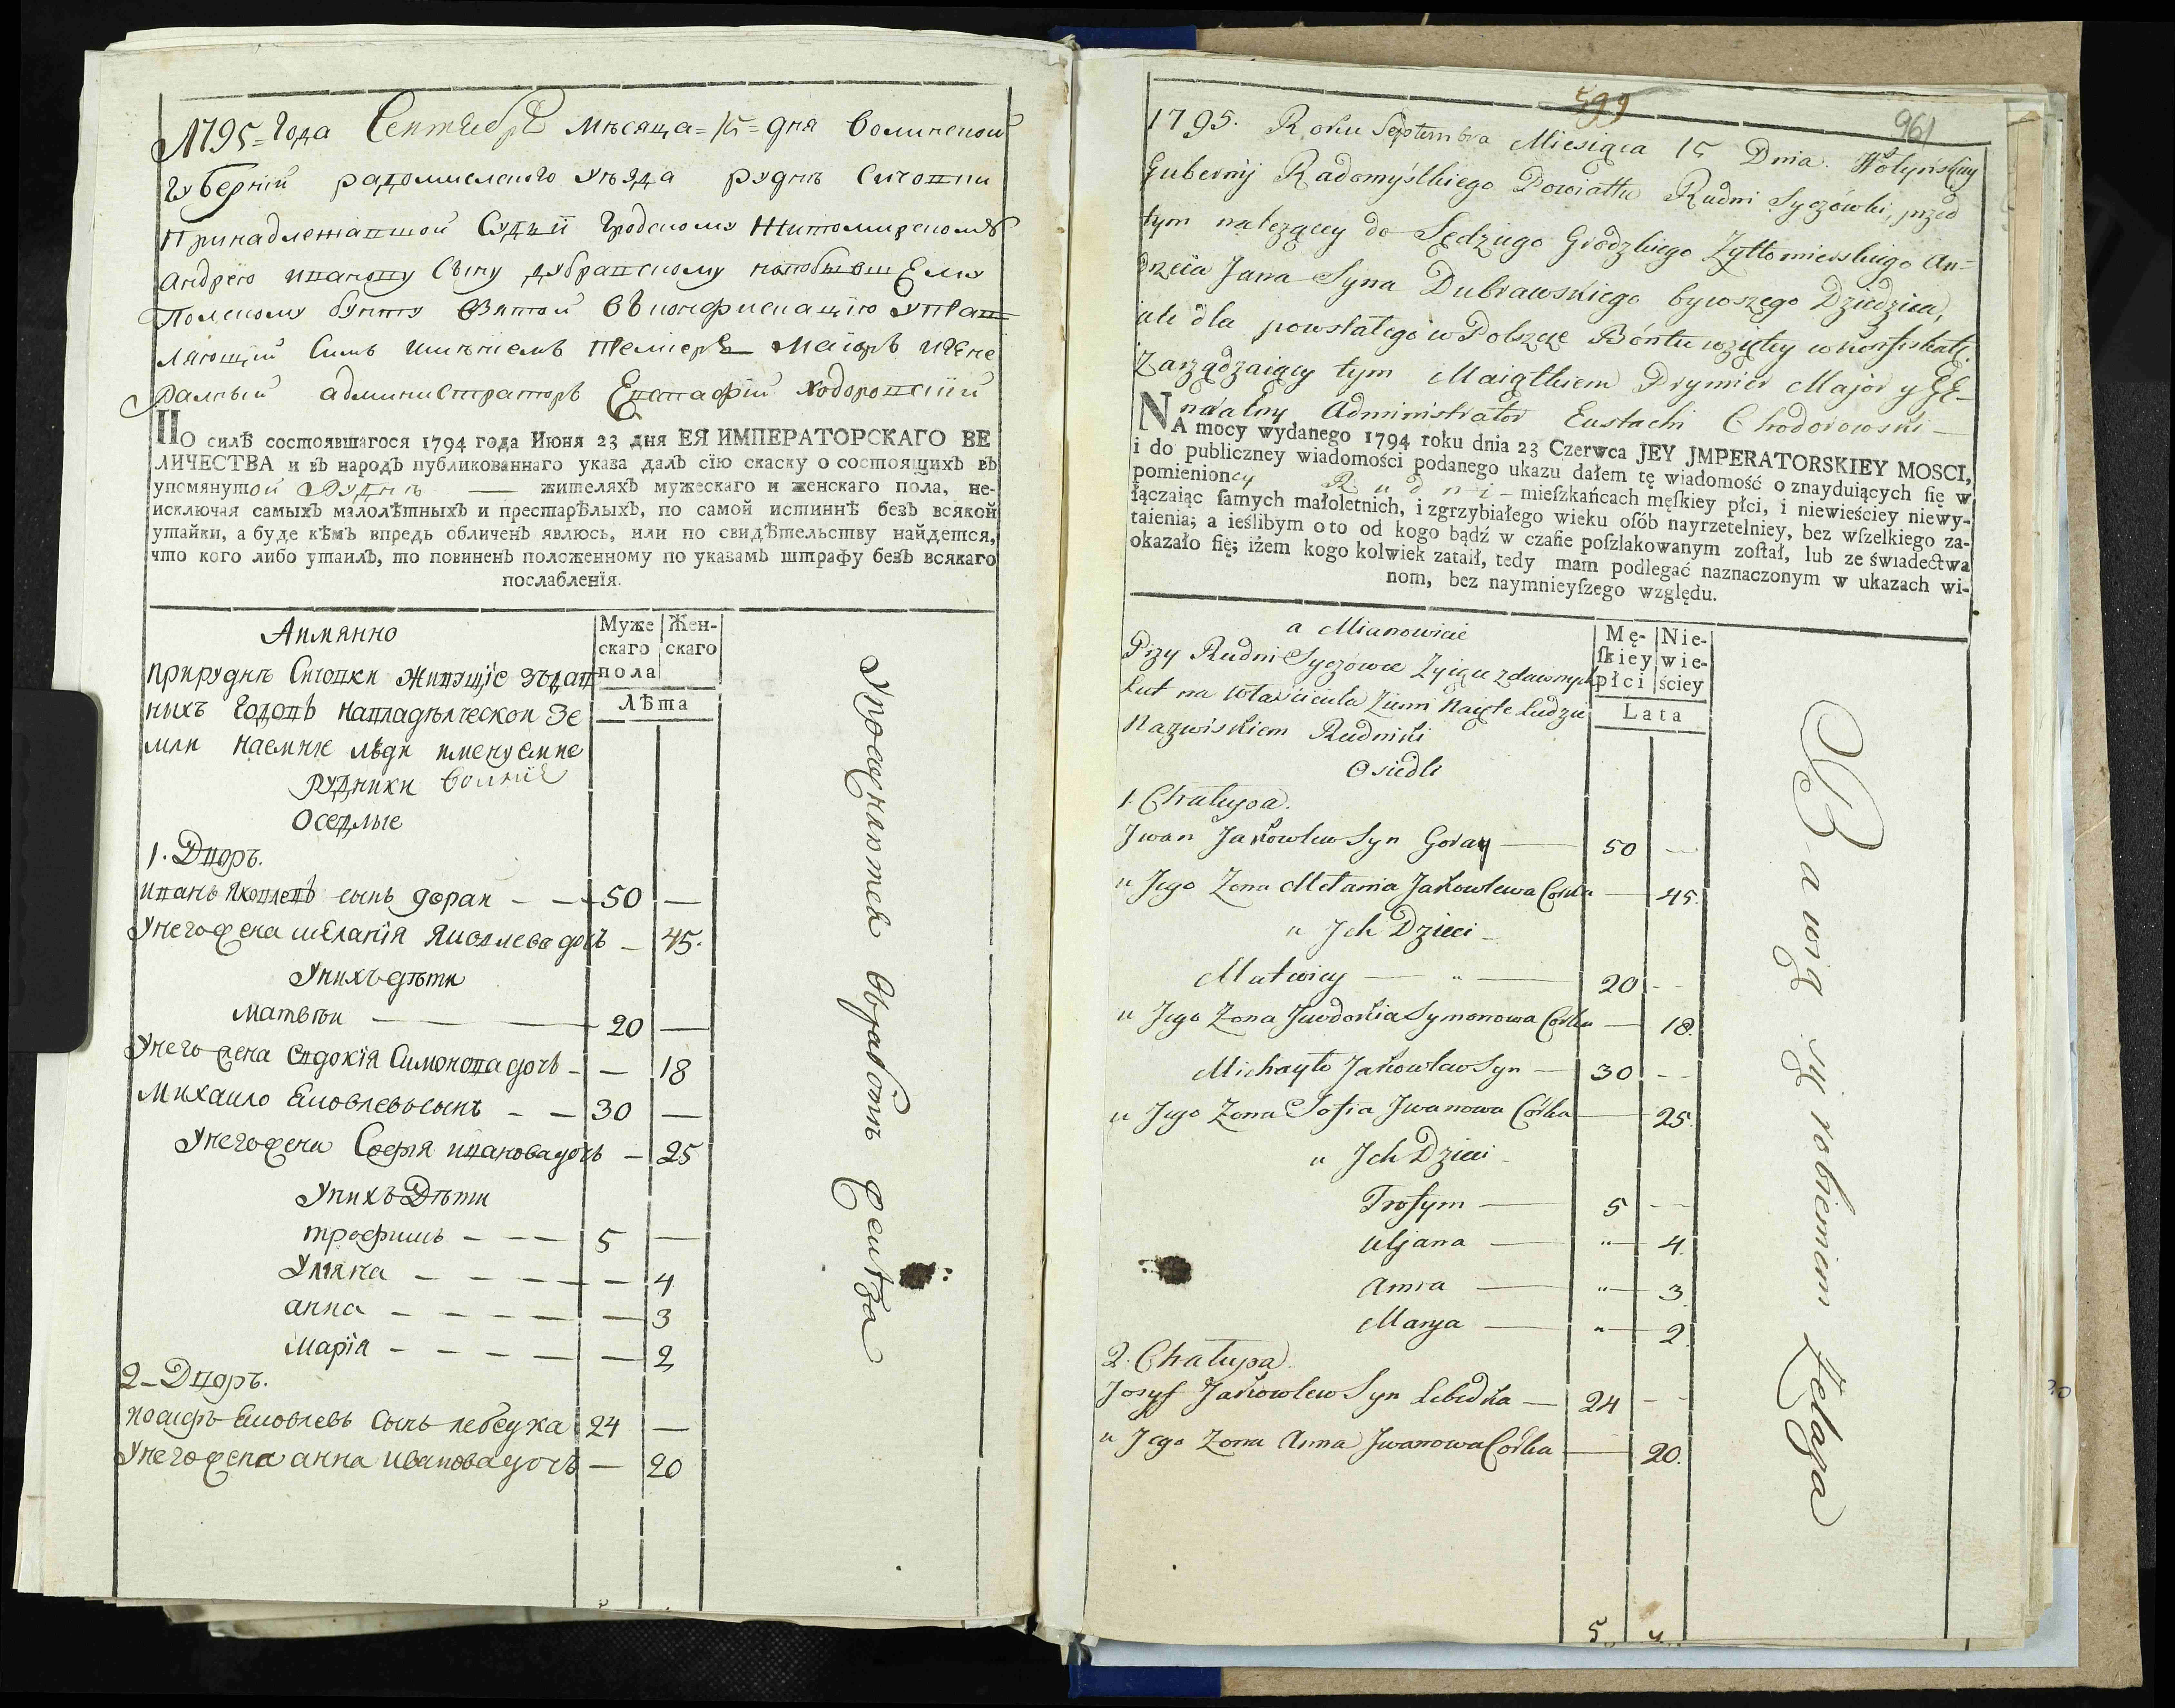 1795 = Года Сентебрѣ мѣсяца = 15 = дня волинской
губерніи радомислского уѣзда руднѣ Сичовки
Принадлежавшой Судьи Гродскому Житомирскому
андрею иванову Сыну дубравскому
Полскому бунту взятой въ конфискацїю управ
ляющїй Симъ имѣнїемъ премиеръ маіоръ игене
ралный администраторъ Евстафїй ходоровскїй
По силѣ состоявшагося 1794 года Июня 23 дня ЕЯ ИМПЕРАТОРСКАГО ВЕ
ЛИЧЕСТВА и въ народъ публикованнаго указа далъ сїю скаску о состоящихъ въ
упомянутой Руднѣ — жителяхъ мужескаго и женскаго пола, не-
исключая самыхъ малолѣтныхъ и престарѣлыхъ, по самой истиннѣ безъ всякой
утайки, а буде кѣмъ впредь обличенъ явлюсь, или по свидѣтельству найдется,
что кого либо утаилъ, то повиненъ положенному по указамъ штрафу безъ всякаго
послабленїя.
Аимянно
Муже
скаго
пола
Жен-
скаго
Лѣта
прируднѣ Сичовки живущїе здав
нихъ годовъ навладѣлческой зе
мли наемніе люди именуемие
рудники волніе
оседлые
1. Дворъ.
иванъ яковлевъ сынъ горай — 50 —
Унегожена меланїя яковлева дочъ — 45.
Унихъ дѣти
матвѣй — 20 —
Унего жена евдокїя Симонова дочъ — — 18
Михаило яковлевъ сынъ — — 30 —
Унегожена Софїя иванова дочъ — 25
Унихъ Дѣти
трофимъ — — — 5 —
Уляна — — — — 4
анна — — — — 3
марїя — — — — 2
2 – Дворъ.
иосифъ яковлевъ сынъ лебедка 24 —
Унегожена анна иванова дочъ — 20
Упражняются въработѣ железа
599
961
1795. Roku Septembra Miesiąca 15 Dnia. Wołyńskiey
Gubernij Radomyślkiego Powiattu Rudni Syczówki, przed
tym należącey do Sędziego Grodzkiego Zyttomierskiego An=
drzeia Jana Syna Dubrawskiego bywszego Dziedzica,
ale dla powstałego w Polszcze Bóntu wziętey w konfiskat.
Zarządzaiący tym Maiątkiem Prymier Major y Ge–
neralny Administrator Eustachi Chodorowski —
NA mocy wydanego 1794 roku dnia 23 Czerwca JEY JMPERATORSKIEY MOSCI,
i do publiczney wiadomości podanego ukazu dałem tę wiadomość o znayduiących ſię w
pomienioney Rudni – mieſzkańcach męſkiey płci, i niewieściey niewy-
łączaiąc ſamych małoletnich, i zgrzybiałego wieku oſób nayrzetelniey, bez wſzelkiego za-
taienia; a ieślibym o to od kogo bądź w czaſie poſzlakowanym zoſtał, lub ze świadectwa
okazało ſię; iżem kogo kolwiek zataił, tedy mam podlegać naznaczonym w ukazach wi-
nom, bez naymnieyſzego względu.
a Mianowicie
Mę-
ſkiey
płci
Nie-
wie-
ściey
Lata
Przy Rudni Syczówce Zyiące z dawnych
Lat na właściciela Ziemi Naięte Ludzie
Nazwiskiem Rudniki
Osiedli
1. Chałupa.
Jwan Jakowlew Syn Goray — 50 —
u Jego Zona Metania Jakowlewa Corka — 45.
u Jch Dzieci –
Matwiey — 20 –
u Jego Zona Juwdokia Symonowa Corka — 18.
Michayło Jakowlew Syn — 30 –
u Jego Zona Sofia Jwanowa Córka — 25.
u Jch Dzieci –
Trofym — 5 —
Uljana — " — 4.
Anna — " — 3.
Marya — " — 2.
2. Chałupa.
Josyf Jakowlew Syn Lebedka — 24 –
u Jego Zona Anna Jwanowa Córka — 20.
5. 4.
Bawią się robieniem Żelaza